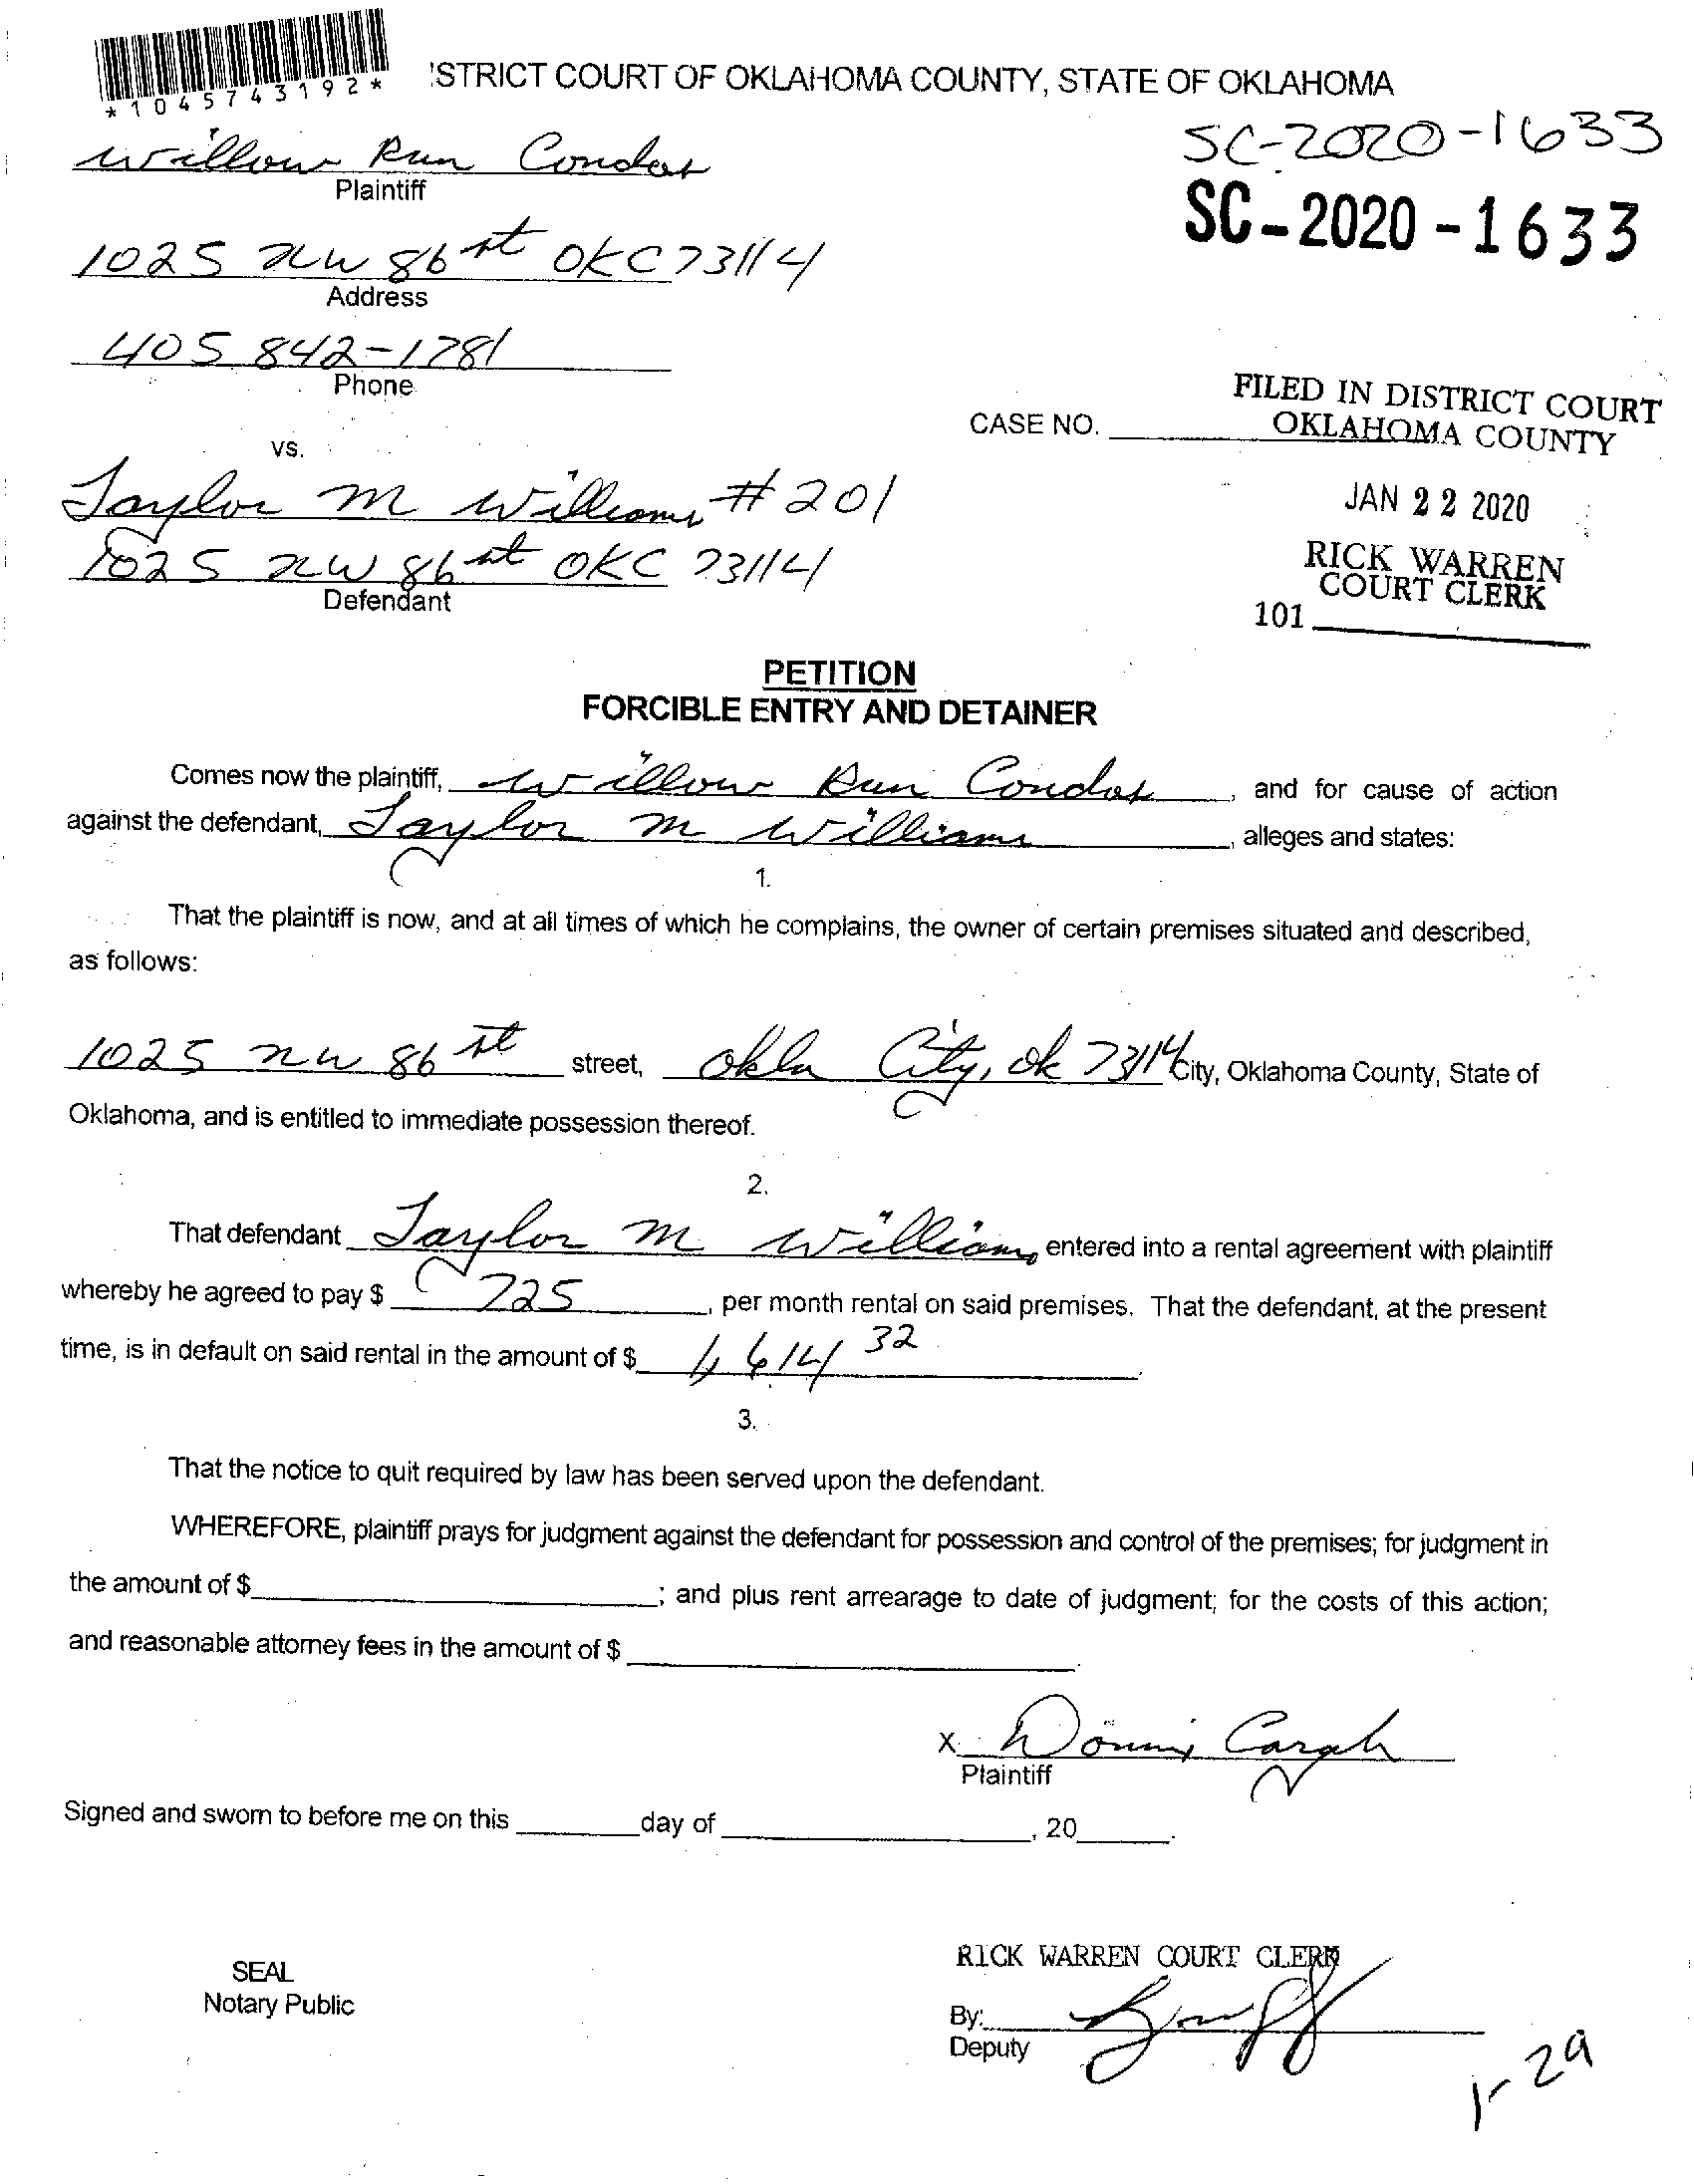 *1045743192*
'STRICT COURT OF OKLAHOMA COUNTY, STATE OF OKLAHOMA
SC-2020-1633
Willow Run Condos
Plaintiff
SC-2020-1633
1025 NW 86 st OKC 73114
Address
405 842-1781
Phone
FILED IN DISTRICT COURT
OKLAHOMA COUNTY
CASE NO.
vs.
Taylor M Williams #201
JAN 22 2020
1025 NW 86 st OKC 73114
Defendant
RICK WARREN
COURT CLERK
101
PETITION
FORCIBLE ENTRY AND DETAINER
Comes now the plaintiff, Willow Run Condos, and for cause of action
against the defendant, Taylor M Williams, alleges and states:
1.
That the plaintiff is now, and at all times of which he complains, the owner of certain premises situated and described,
as follows:
1025 NW 86 st street, Okla City, Ok 73114 City, Oklahoma County, State of
Oklahoma, and is entitled to immediate possession thereof.
2.
That defendant Taylor M Williams entered into a rental agreement with plaintiff
whereby he agreed to pay $ 725, per month rental on said premises. That the defendant, at the present
time, is in default on said rental in the amount of $ 1,614 32.
3.
That the notice to quit required by law has been served upon the defendant.
WHEREFORE, plaintiff prays for judgment against the defendant for possession and control of the premises; for judgment in
the amount of $ ; and plus rent arrearage to date of judgment; for the costs of this action;
and reasonable attorney fees in the amount of $ .
X
Plaintiff
Signed and sworn to before me on this day of , 20 .
RICK WARREN COURT CLERK
SEAL
Notary Public
By:
Deputy
1-29